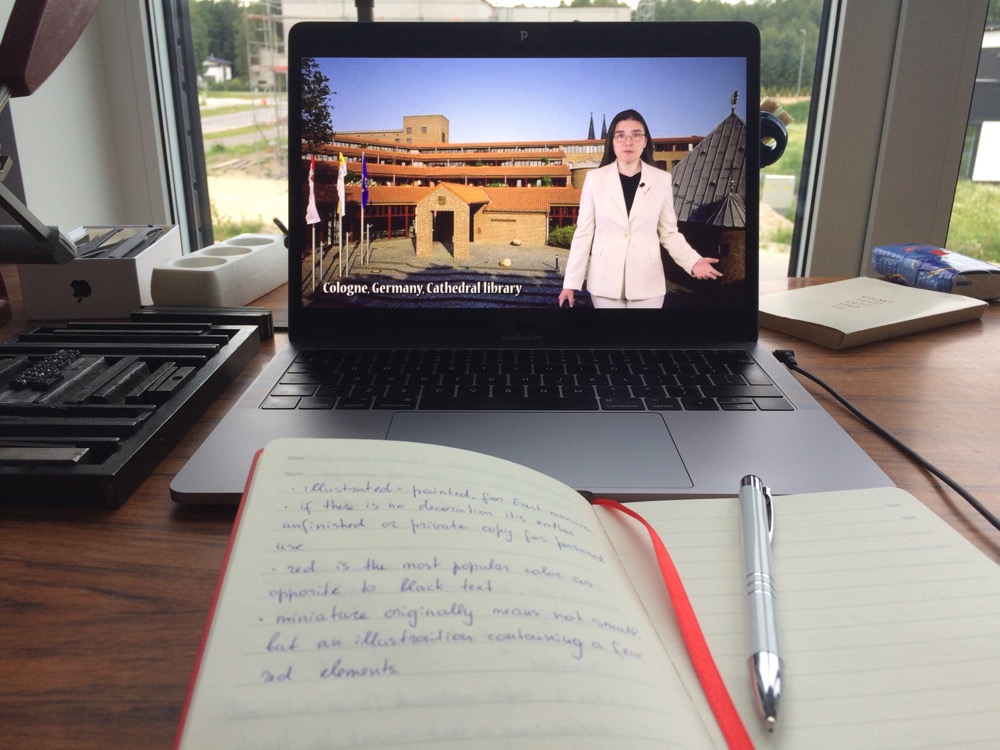 Cologne, Germany, Cathedral library
MacBook Pro
• illustrated = painted, for
• if there is no decoration it is either
unfinished or private copy for personal
use
• red is the most popular color as
opposite to black text
• miniature originally means not small,
but an illustration containing a few
red elements